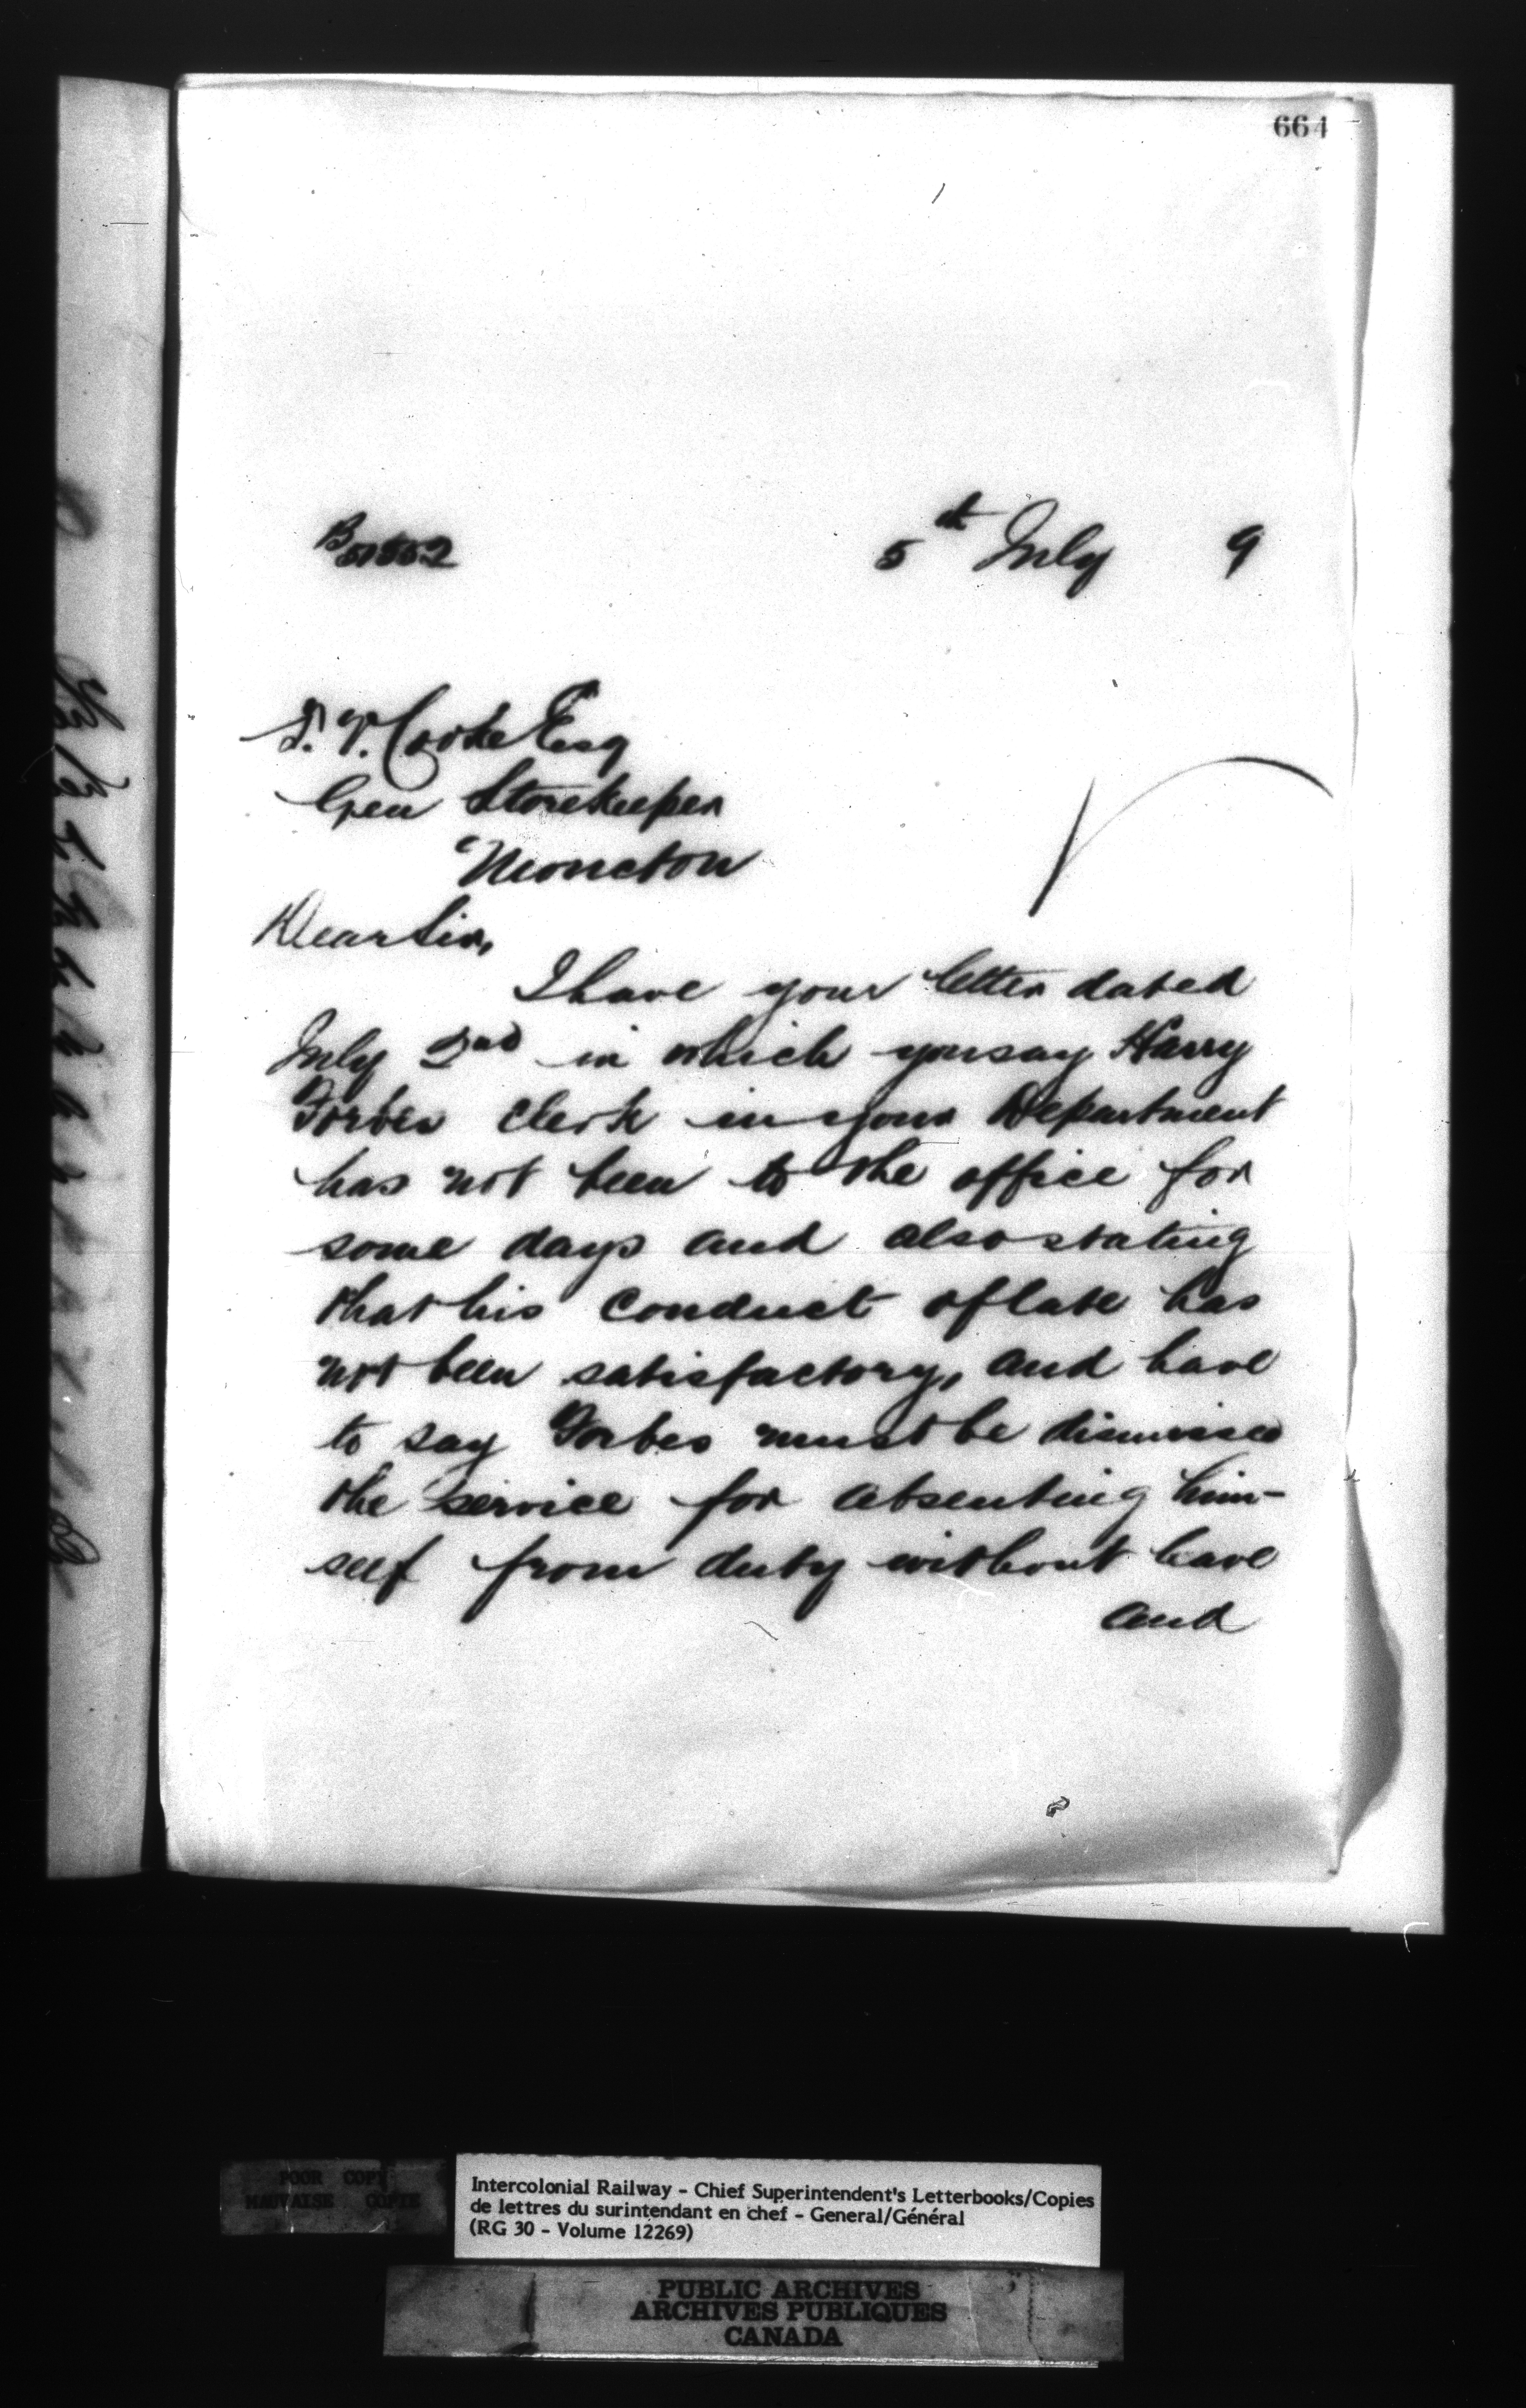 664
B51552
5th July 9
T. V. Cooke Esq
Gen Storekeeper
Moncton
Dear Sir,
I have your letter dated
July 2nd in which you say Harry
Forbes clerk in your Department
has not been to the office for
some days and also stating
that his conduct of late has
not been satisfactory, and have
to say Forbes must be dismissed
the service for absenting him-
self from duty without leave
and
POOR COPY
MAUVAISE COPIE
Intercolonial Railway - Chief Superintendent's Letterbooks/Copies
de lettres du surintendant en chef - General/Général
(RG 30 - Volume 12269)
PUBLIC ARCHIVES
ARCHIVES PUBLIQUES
CANADA